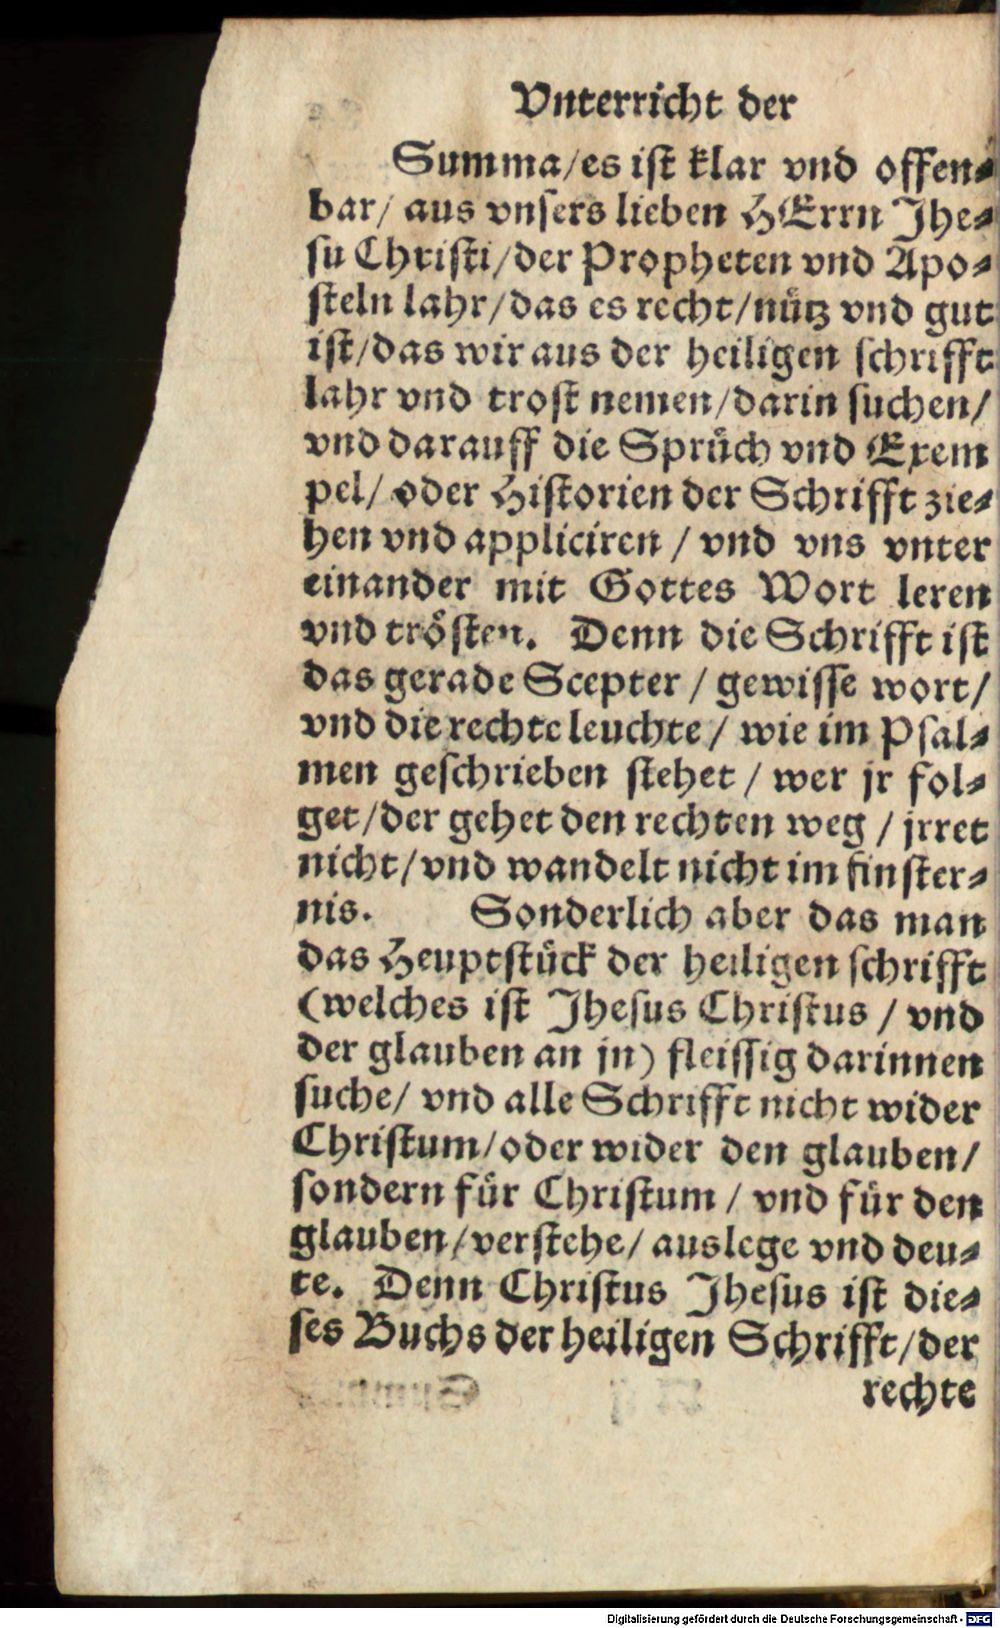 Vnterricht der
Summa/es ist klar vnd offen⸗
bar/ aus vnsers lieben HErrn Jhe⸗
su Christi/der Propheten vnd Apo⸗
steln lahr/das es recht/nütz vnd gut
ist/das wir aus der heiligen schrifft
lahr vnd trost nemen/darin suchen/
vnd darauff die Sprüch vnd Exem
pel/ oder Historien der Schrifft zie⸗
hen vnd appliciren / vnd vns vnter
einander mit Gottes Wort leren
vnd trösten. Denn die Schrifft ist
das gerade Scepter / gewisse wort/
vnd die rechte leuchte / wie im Psal⸗
men geschrieben stehet / wer jr fol⸗
get/der gehet den rechten weg / jrret
nicht/vnd wandelt nicht im finster⸗
nis. Sonderlich aber das man
das Heuptstück der heiligen schrifft
(welches ist Jhesus Christus / vnd
der glauben an jn) fleissig darinnen
suche/ vnd alle Schrifft nicht wider
Christum/oder wider den glauben/
sondern für Christum / vnd für den
glauben/verstehe/ auslege vnd deu⸗
te. Denn Christus Jhesus ist die⸗
ses Buchs der heiligen Schrifft/der
rechte
Digitalisierung gefördert durch die Deutsche Forschungsgemeinschaft - DFG